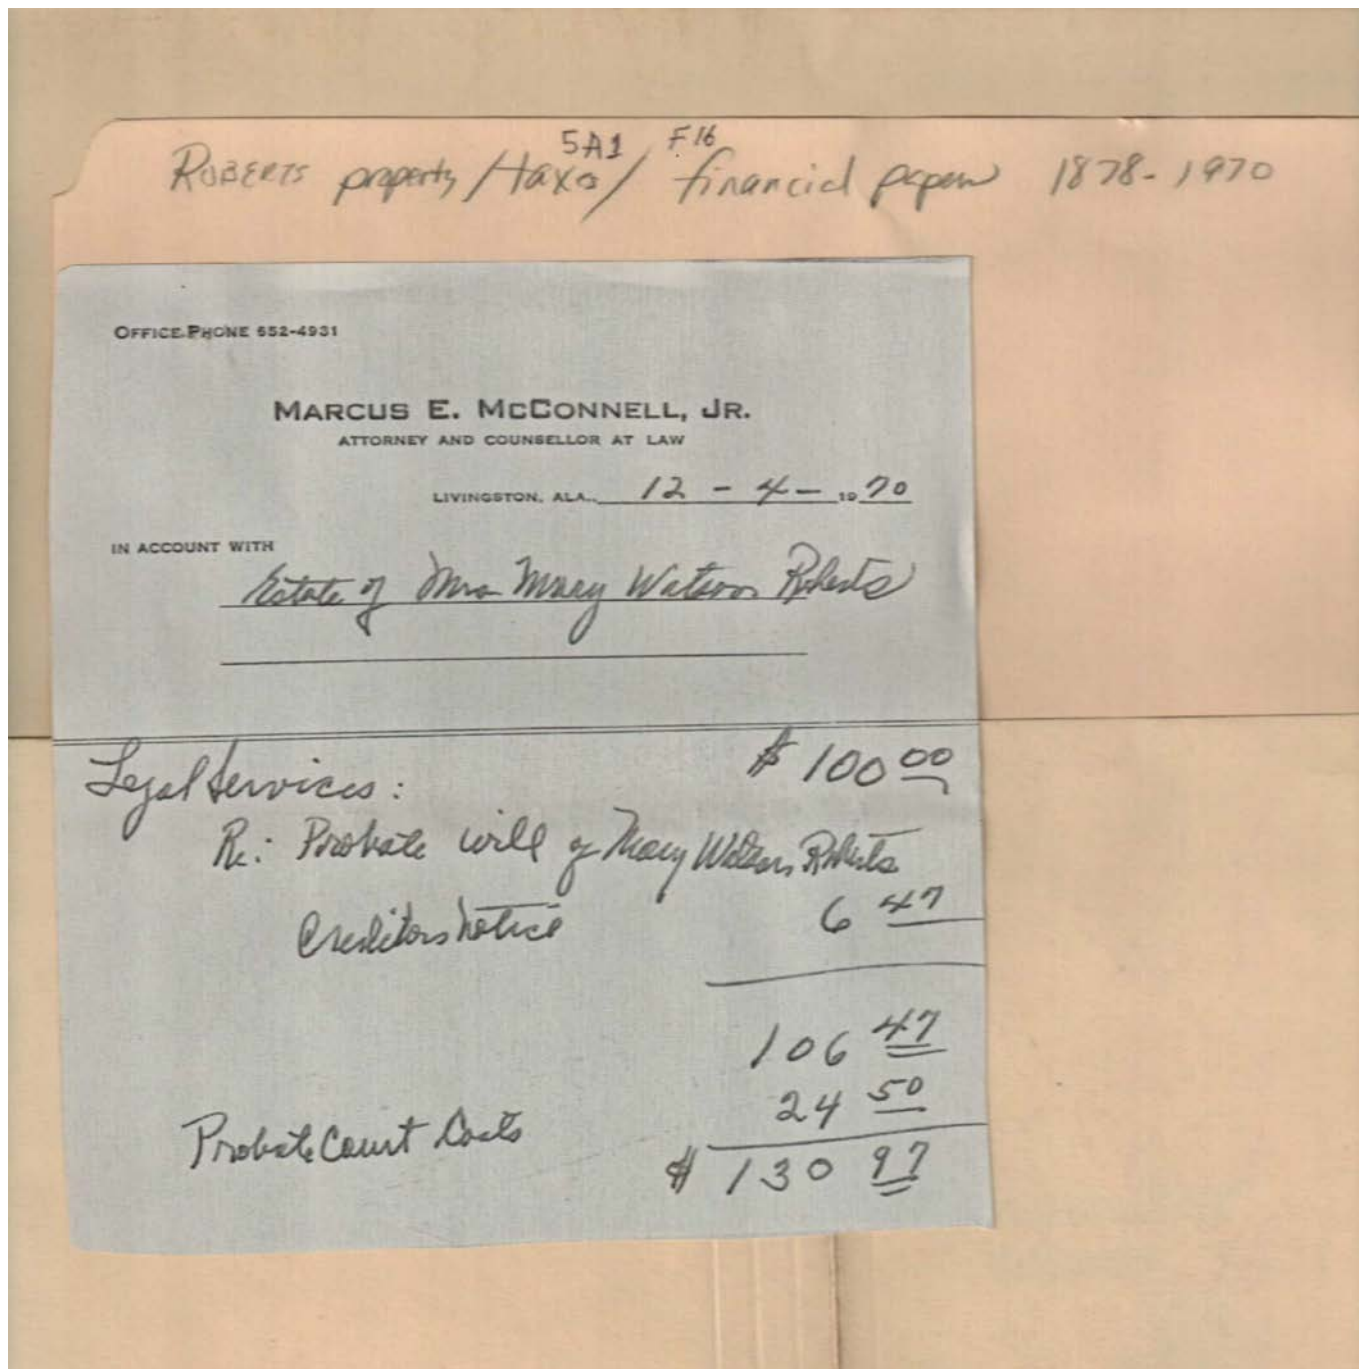 5A1 F16
ROBERTS property/taxes/ financial papers 1878-1970
OFFICE PHONE 652-4931
MARCUS E. MCCONNELL, JR.
ATTORNEY AND COUNSELLOR AT LAW
LIVINGSTON, ALA., 12-4- 1970
IN ACCOUNT WITH
Estate of Mrs Mary Watson Roberts
Legal Services: $ 100 00
Re: Probate will of Mary Watson Roberts
Creditors notice 6 47
106 47
24 50
Probate Court Costs
$ 130 97